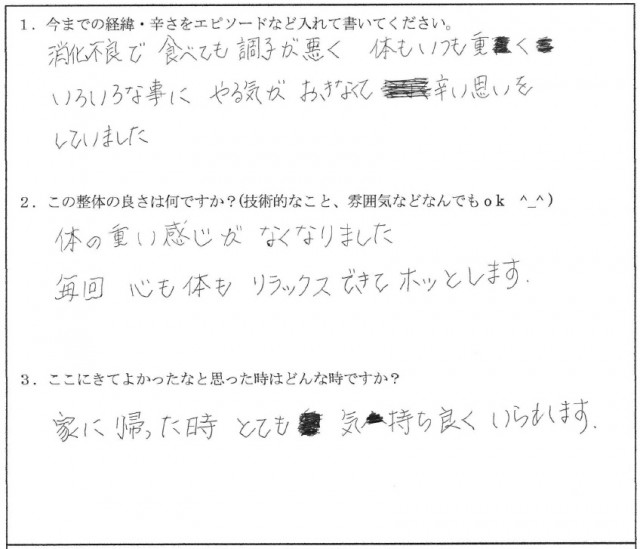 1．今までの経緯・辛さをエピソードなど入れて書いてください。
消化不良で 食べても調子が悪く 体もいつも重く
いろいろな事に やる気が おきなくて 辛い思いを
していました
2．この整体の良さは何ですか？(技術的なこと、雰囲気などなんでもｏｋ　^_^)
体の重い感じが なくなりました
毎回 心も体も リラックスできて ホッとします.
3．ここにきてよかったなと思った時はどんな時ですか？
家に帰った時 とても 気持ち良く いられます.